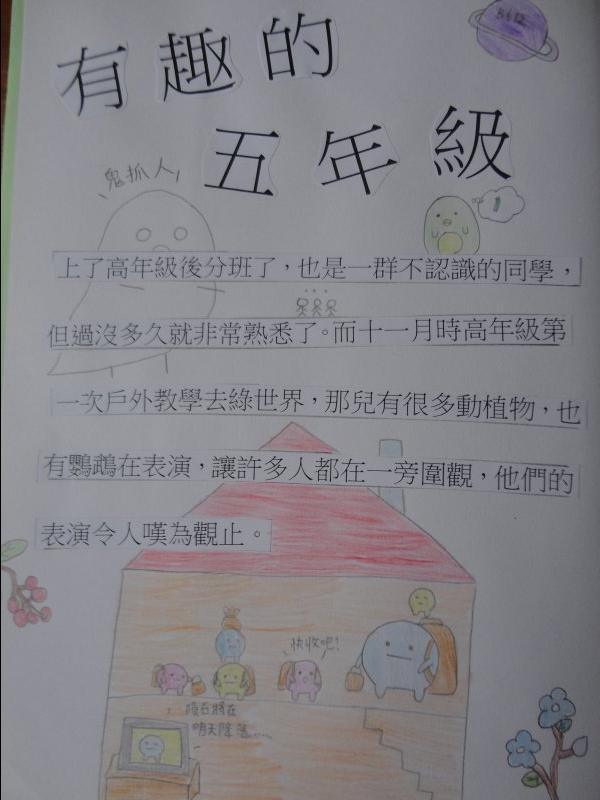 B612
有趣的
五年級
鬼抓人
上了高年級後分班了，也是一群不認識的同學，
但過沒多久就非常熟悉了。而十一月時高年級第
一次戶外教學去綠世界，那兒有很多動植物，也
有鸚鵡在表演，讓許多人都在一旁圍觀，他們的
表演令人嘆為觀止。
快收吧!
隕石將在
明天降落......